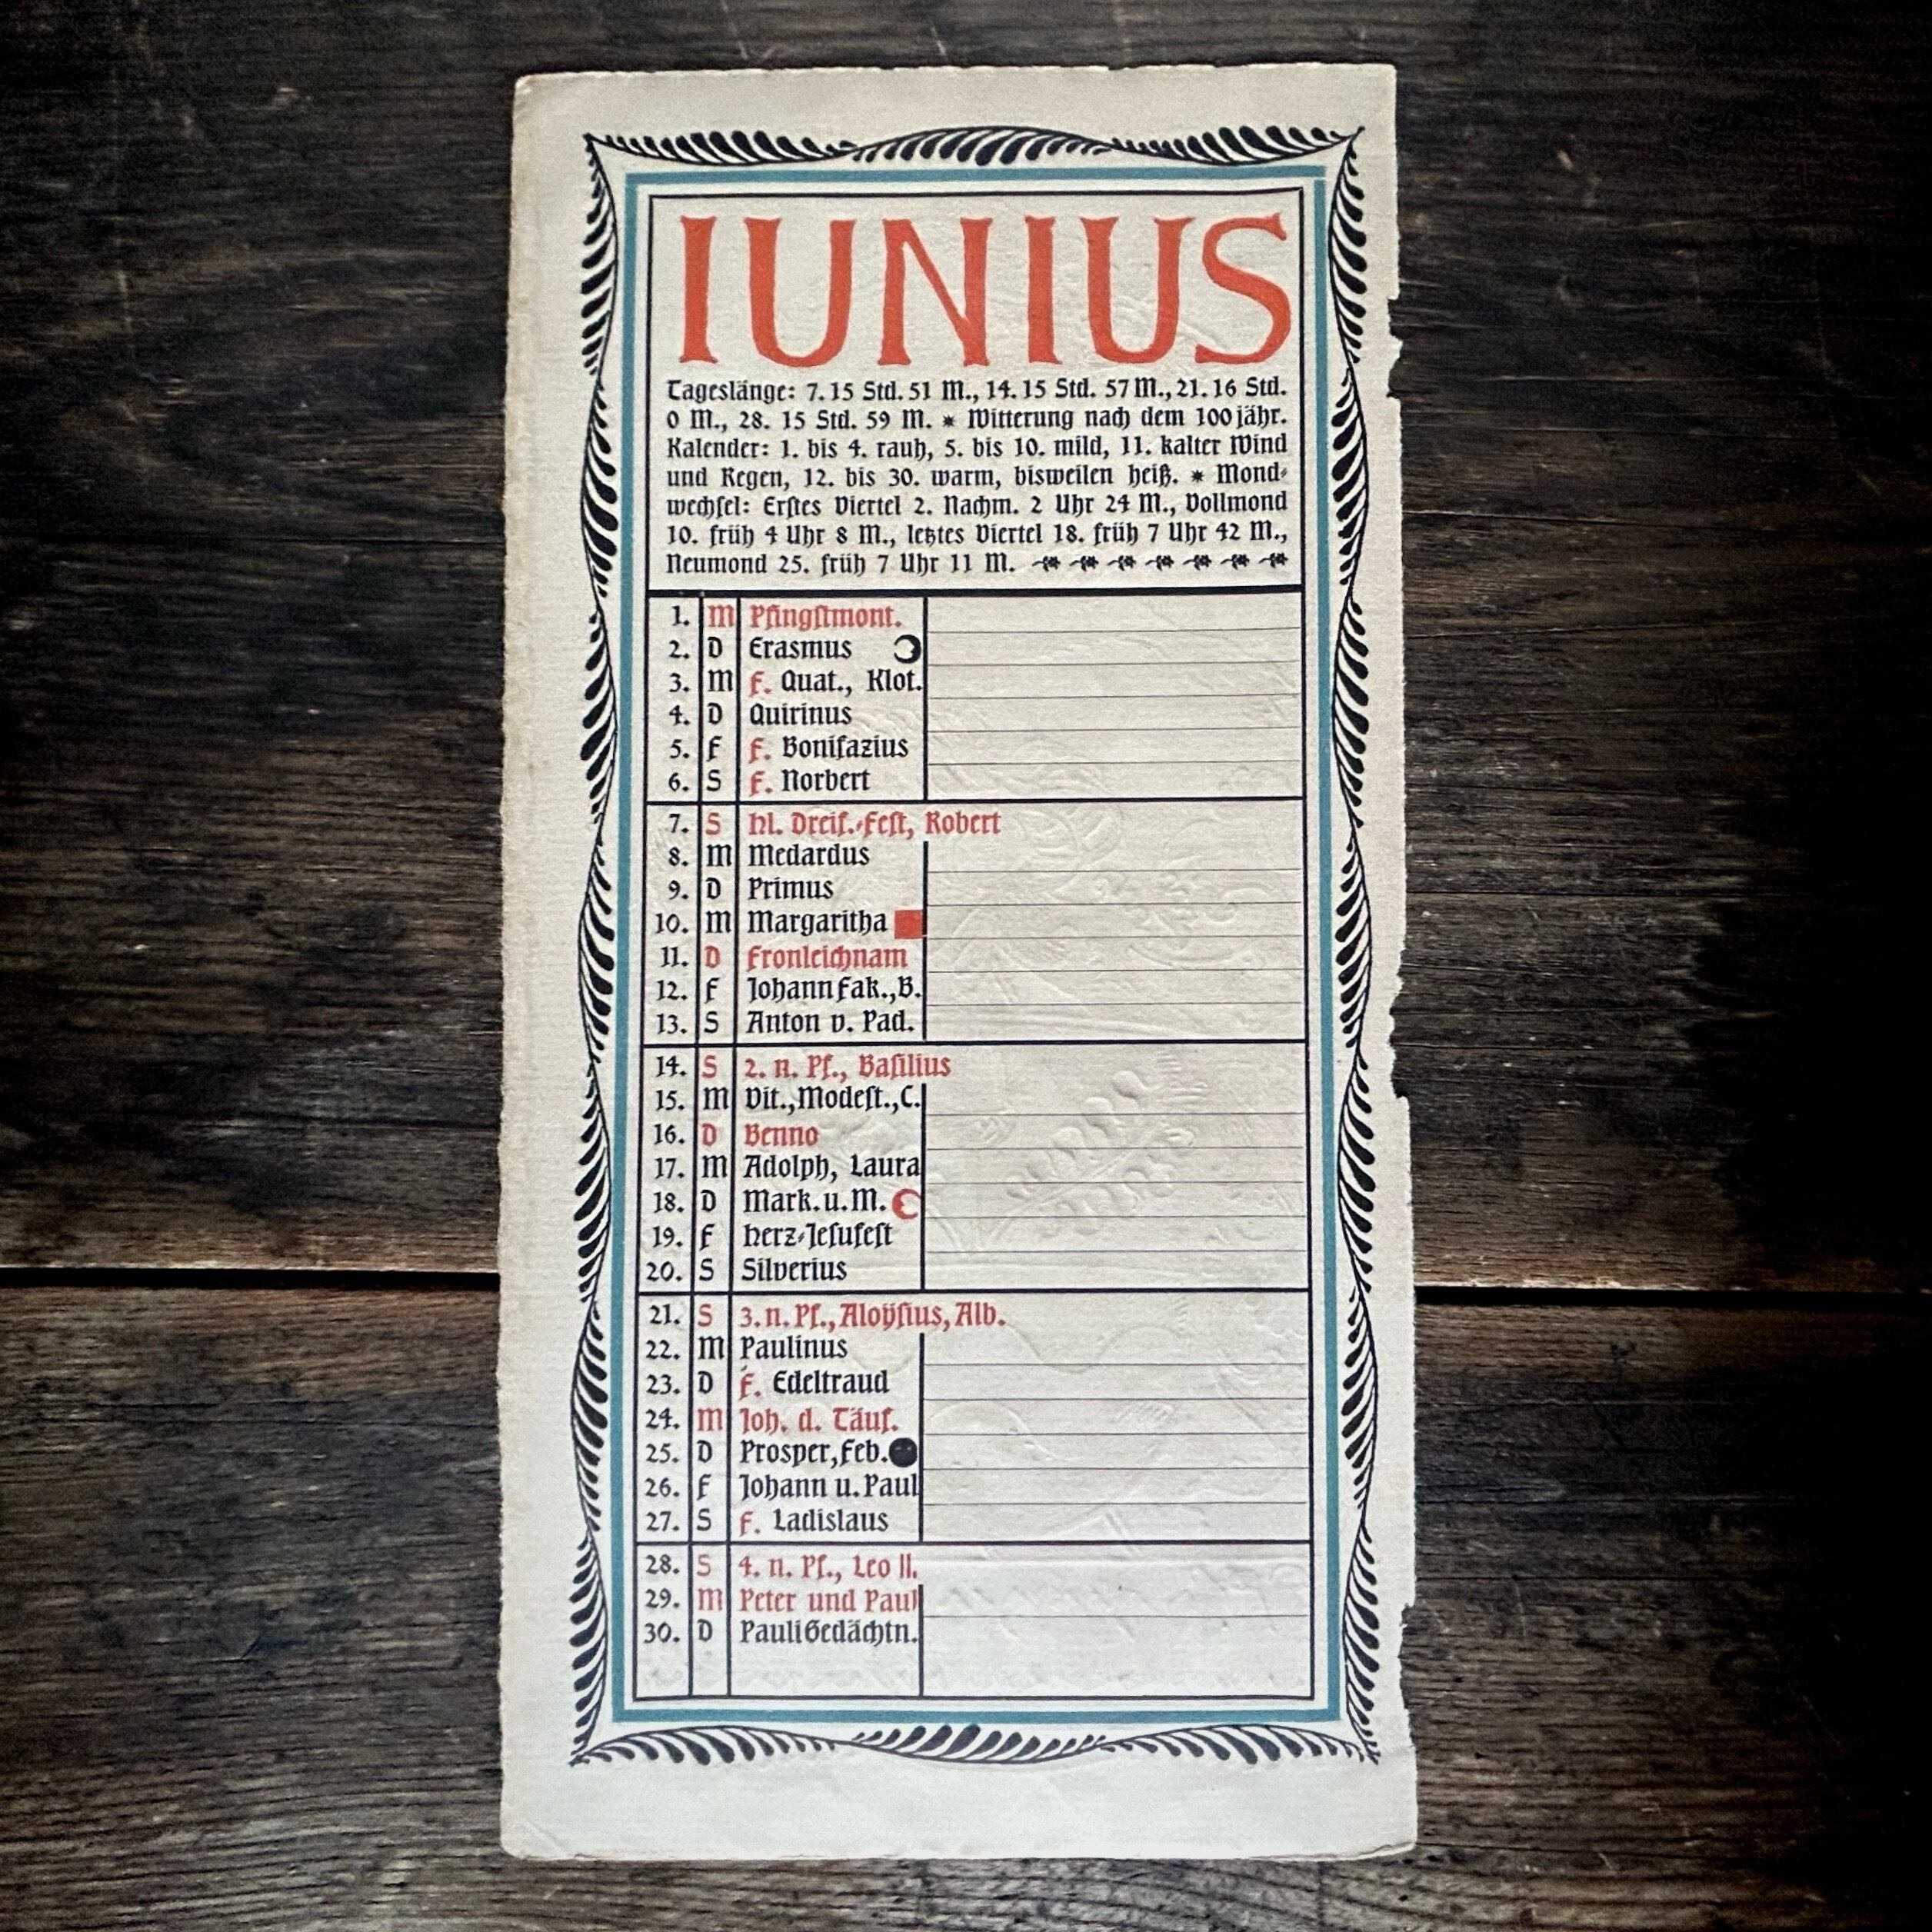 IUNIUS
Tageslänge: 7. 15 Std. 51 M., 14. 15 Std. 57 M., 21. 16 Std.
0 M., 28. 15 Std. 59 M. * Witterung nach dem 100jähr.
Kalender: 1. bis 4. rauh, 5. bis 10. mild, 11. kalter Wind
und Regen, 12. bis 30. warm, bisweilen heiß. * Mond-
wechsel: Erstes Viertel 2. Nachm. 2 Uhr 24 M., Vollmond
10. früh 4 Uhr 8 M., letztes Viertel 18. früh 7 Uhr 42 M.,
Neumond 25. früh 7 Uhr 11 M.
1. M Pfingstmont.
2. D Erasmus
3. M F. Quat., Klot.
4. D Quirinus
5. F F. Bonifazius
6. S F. Norbert
7. S hl. Dreif.-Fest, Robert
8. M Medardus
9. D Primus
10. M Margaritha
11. D Fronleichnam
12. F Johann Fak., B.
13. S Anton v. Pad.
14. S 2. n. Pf., Basilius
15. M Vit., Modest., C.
16. D Benno
17. M Adolph, Laura
18. D Mark. u. M.
19. F Herz-Jesufest
20. S Silverius
21. S 3. n. Pf., Aloÿsius, Alb.
22. M Paulinus
23. D F. Edeltraud
24. M Joh. d. Täuf.
25. D Prosper, Feb.
26. F Johann u. Paul
27. S F. Ladislaus
28. S 4. n. Pf., Leo II.
29. M Peter und Paul
30. D Pauli Gedächtn.